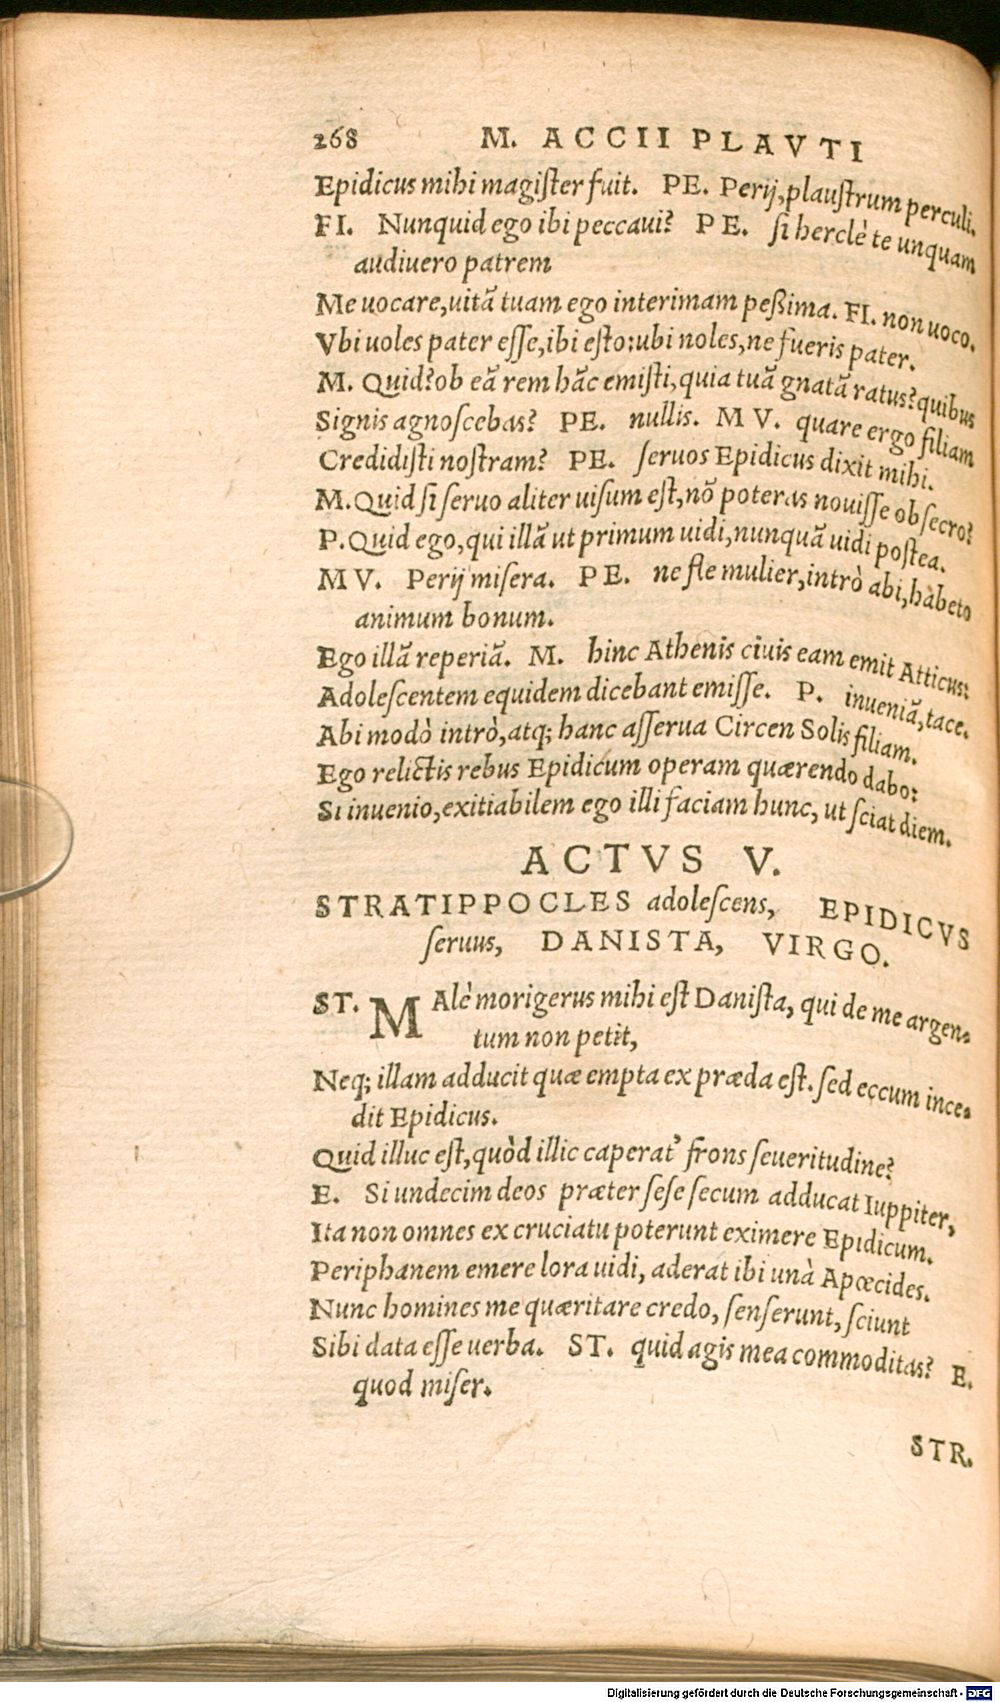 268 M. ACCII PLAVTI
Epidicus mihi magiſter fuit. PE. Perij, plauſtrum perculi.
FI. Nunquid ego ibi peccaui? PE. ſi herclè te unquam
audiuero patrem
Me uocare, uitã tuam ego interimam peßima. FI. non uoco.
Vbi uoles pater eſſe, ibi eſto: ubi noles, ne fueris pater.
M. Quid? ob eã rem hãc emiſti, quia tuã gnatã ratus? quibus
Signis agnoſcebas? PE. nullis. MV. quare ergo filiam
Credidiſti noſtram? PE. ſeruos Epidicus dixit mihi.
M. Quid ſi ſeruo aliter uiſum eſt, nõ poteras nouiſſe obſecro?
P. Quid ego, qui illã ut primum uidi, nunquã uidi poſtea.
MV. Perij miſera. PE. ne fle mulier, intrò abi, habeto
animum bonum.
Ego illã reperiã. M. hinc Athenis ciuis eam emit Atticus:
Adoleſcentem equidem dicebant emiſſe. P. inueniã, tace.
Abi modò intrò, atq; hanc aſſerua Circen Solis filiam.
Ego relictis rebus Epidicum operam quærendo dabo:
Si inuenio, exitiabilem ego illi faciam hunc, ut ſciat diem.
ACTVS V.
STRATIPPOCLES adoleſcens, EPIDICVS
ſeruus, DANISTA, VIRGO.
ST. MAlè morigerus mihi eſt Daniſta, qui de me argen-
tum non petit,
Neq; illam adducit quæ empta ex præda eſt. ſed eccum ince-
dit Epidicus.
Quid illuc eſt, quòd illic caperat' frons ſeueritudine?
E. Si undecim deos præter ſeſe ſecum adducat Iuppiter,
Ita non omnes ex cruciatu poterunt eximere Epidicum.
Periphanem emere lora uidi, aderat ibi unà Apœcides.
Nunc homines me quæritare credo, ſenſerunt, ſciunt
Sibi data eſſe uerba. ST. quid agis mea commoditas? E.
quod miſer.
STR.
Digitalisierung gefördert durch die Deutsche Forschungsgemeinschaft - DFG